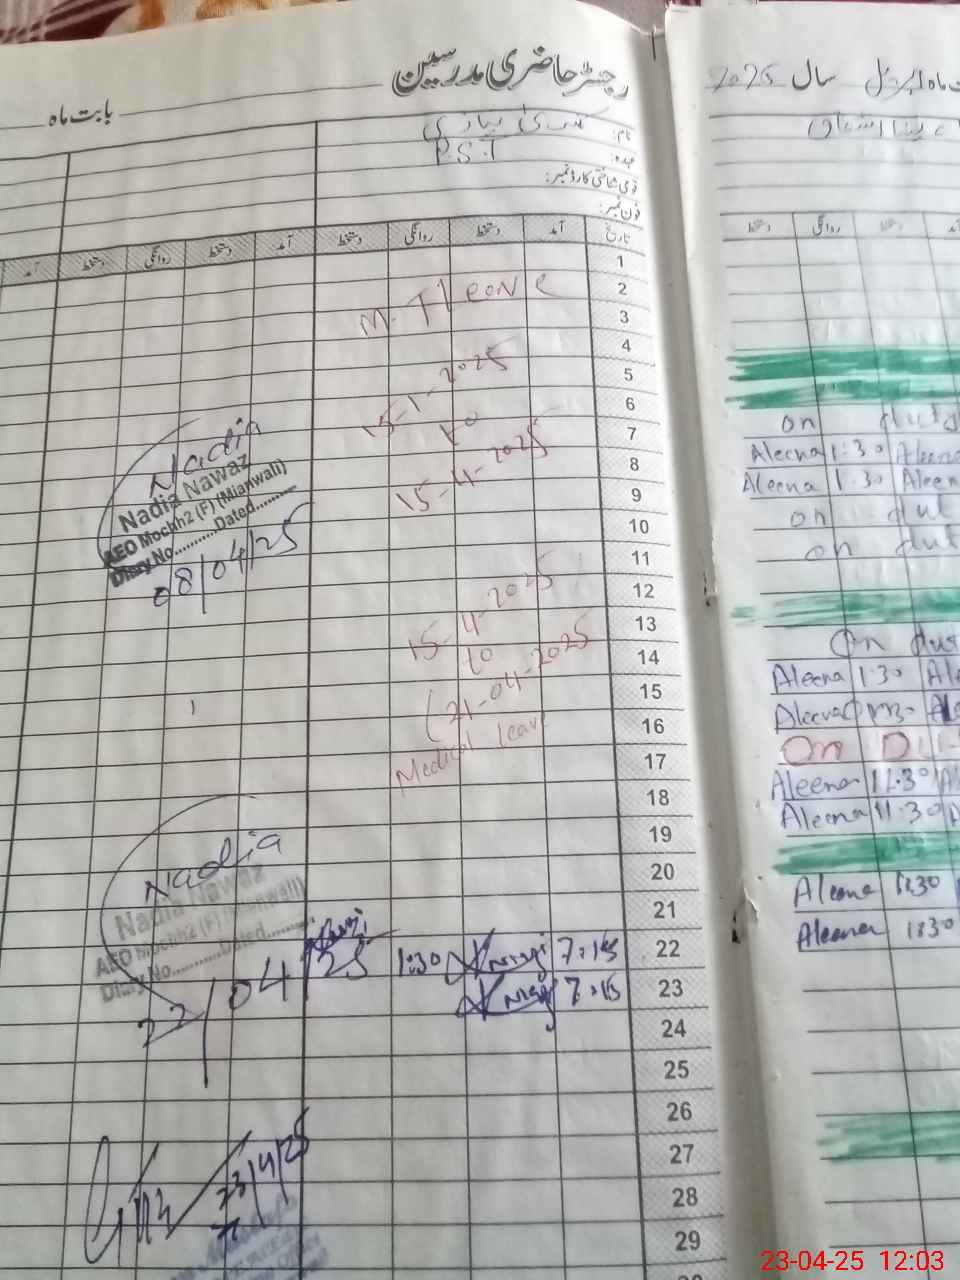 رجسٹر حاضری مدرسین
بابت ماہ
نام:
عہدہ: P.S.T
قومی شناختی کارڈ نمبر:
فون نمبر:
تاریخ آمد دستخط روانگی دستخط آمد دستخط روانگی دستخط آمد
1
2
3
4
5
6
7
8
9
10
11
12
13
14
15
16
17
18
19
20
21
22 7:15 1:30
23 7:15
24
25
26
27
28
29
15-1-2025
to
15-4-2025
15-4-2025
to
21-04-2025
Medical leav
Nadia
Nadia Nawaz
AEO Mochh2 (F) (Mianwali)
Diary No............Dated............
08/04/25
Nadia
Nadia Nawaz
AEO Mochh2 (F) (Mianwali)
Diary No............Dated............
22/04/25
23/4/25
ماہ اپریل سال 2025
آمد دستخط روانگی دستخط
on duty
Aleena 1:30 Aleena
Aleena 1:30 Aleen
on dut
on dut
On dut
Aleena 1:30 Ale
On
Aleena 11:30
Aleena 11:30
Aleena 11:30
Aleena 1:30
23-04-25 12:03